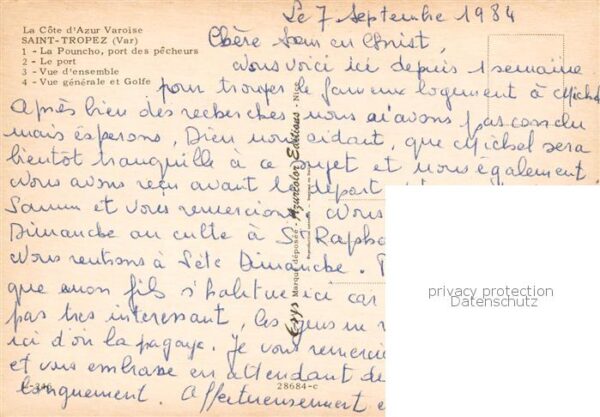 Le 7 Septembre 1984
La Côte d'Azur Varoise
SAINT-TROPEZ (Var)
1 - La Pouncho, port des pêcheurs
2 - Le port
3 - Vue d'ensemble
4 - Vue générale et Golfe
Chère Sœur en Christ,
Nous voici ici depuis 1 semaine
pour trouver le fameux logement à Michel
Après bien des recherches nous n'avons pas conclu
mais espérons, Dieu nous aidant, que Michel sera
bientôt tranquille à ce sujet et nous également
Nous avons reçu avant le départ
et vous remercions Nous
Dimanche au culte à St Rapha
Nous rentrons à Sète Dimanche.
que mon fils s'habitue ici car
pas très intéressant, les gens
ici d'où la pagaye. Je vous remercie
et vous embrasse en attendant de
longuement. Affectueusement
28684-c
Marque déposée - Azurcolor Editions - Nice
privacy protection
Datenschutz